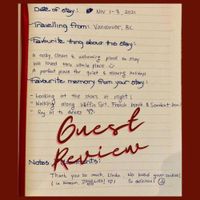 Date of stay: Nov 1-3, 2021
Travelling from: Vancouver, BC
Favourite thing about the stay:
A cozy, clean & relaxing place to stay
We loved this whole place
A perfect place for quiet & starry nights
Favourite memory from your stay:
- Looking at the stars at night!
- Walking along Saffin Spit, French beach &
- Fig in
Guest
Review
Notes
Thank you so much, Linda. We loved your cookies
So delicious!